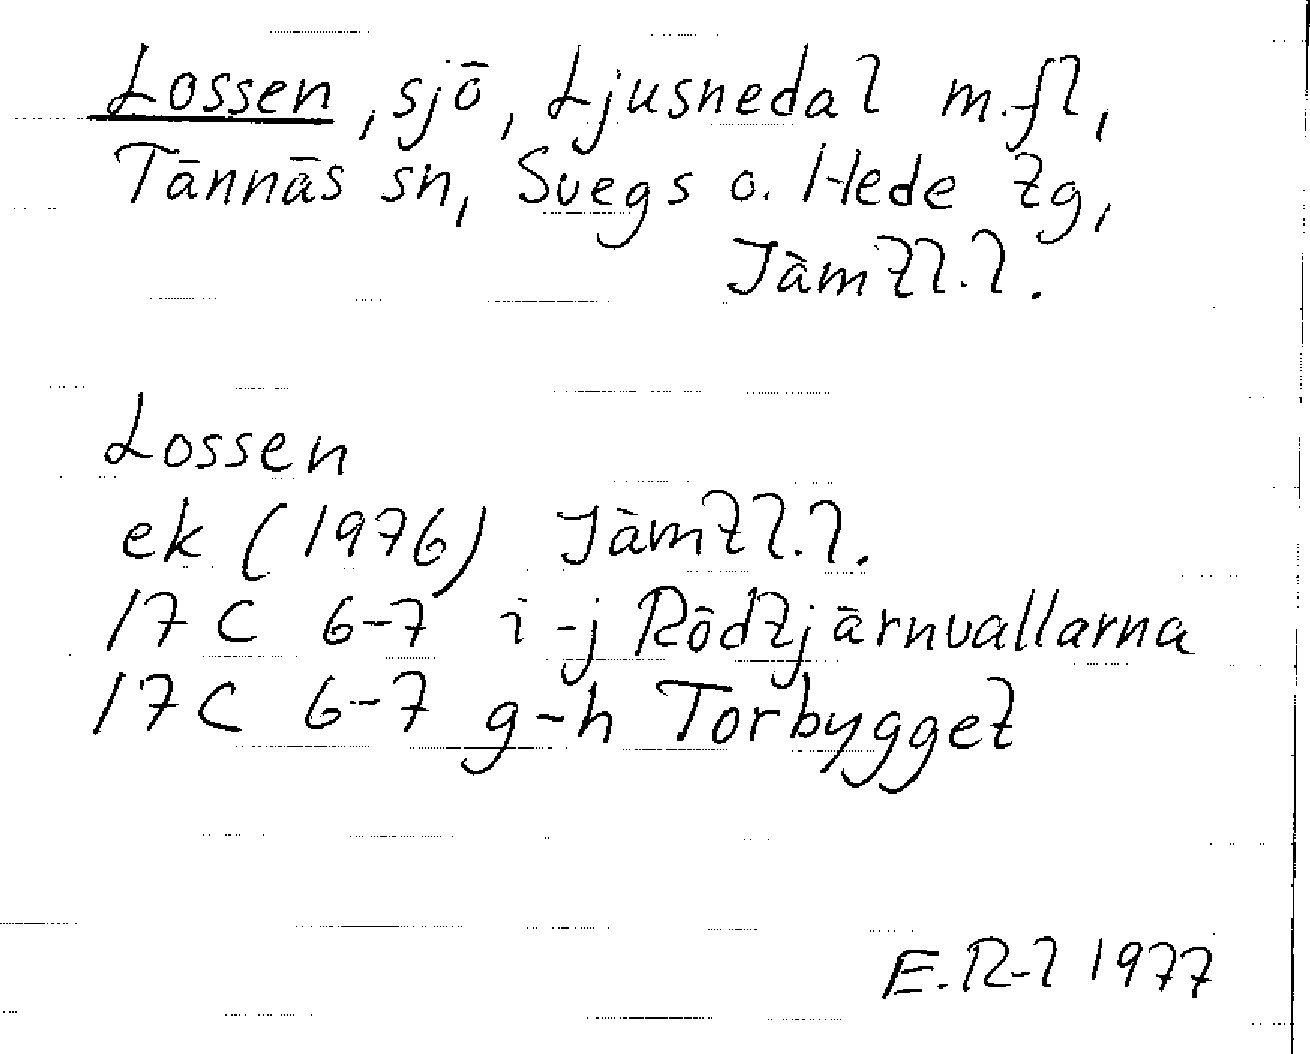 Lossen, sjö, Ljusnedal m.fl,
Tännäs sn, Svegs o. Hede tg,
Jämtl.l.
Lossen
ek (1976) Jämtl.l.
17 C 6-7 i-j Rödtjärnvallarna
17 C 6-7 g-h Torbygget
E.R-l 1977